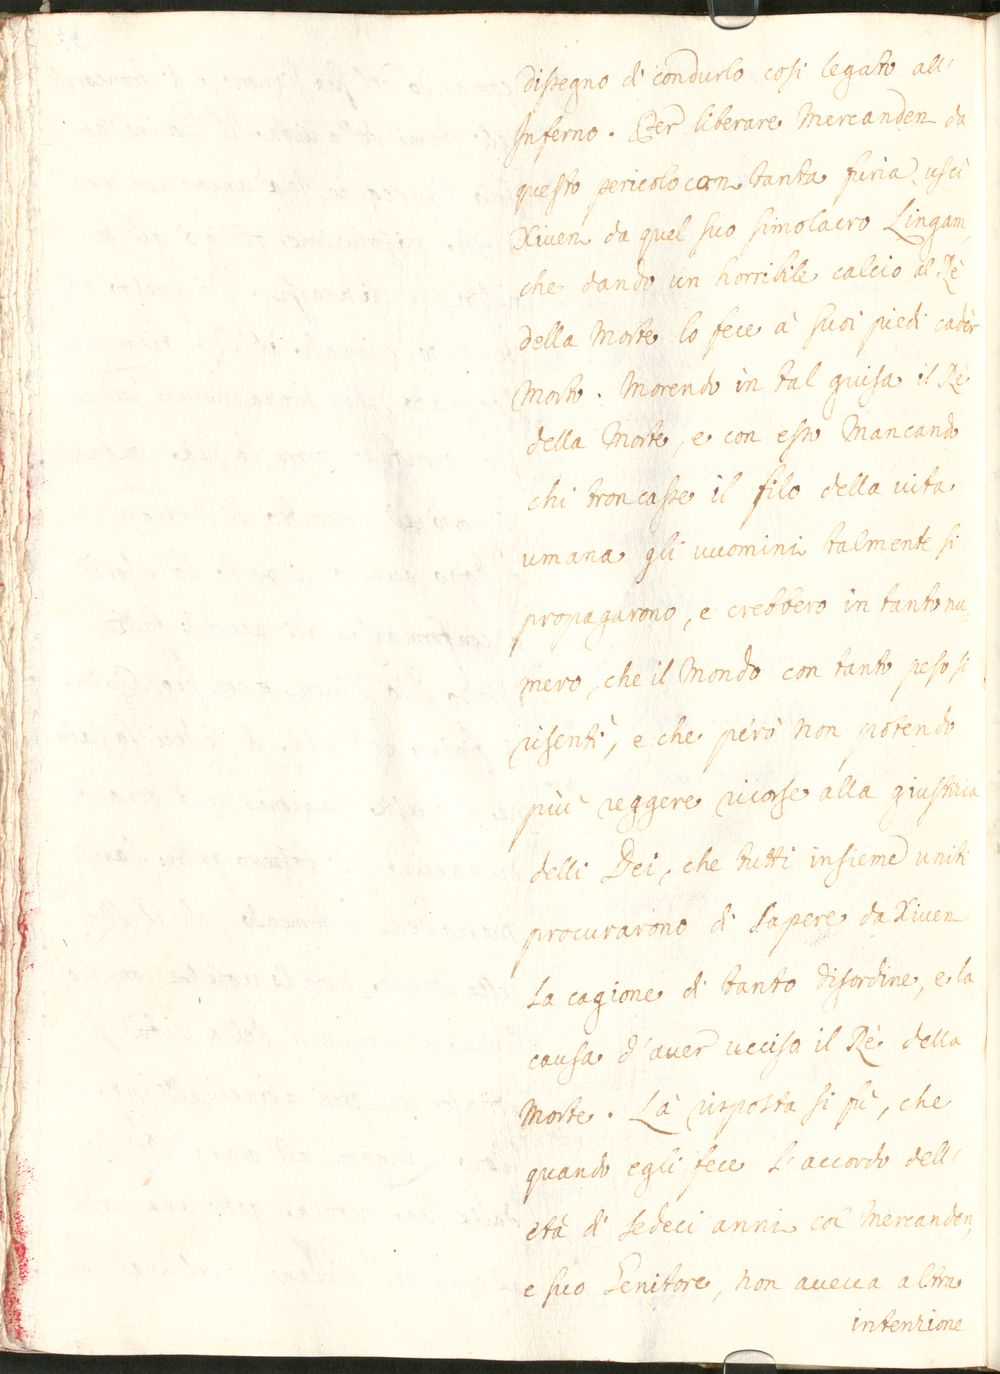 disegno di condurlo cosi legato all'
Inferno. Per liberare Mercanden da
questo pericolo con tanta furia uscì
Xiven da quel suo simolacro Lingam,
che dando un horribile calcio al Rè
della Morte lo fece à suoi piedi cader
Morto. Morendo in tal guisa il Rè
della Morte, e con esso Mancando
chi troncasse il filo della vita
umana gli uuomini talmente si
propagarono, e crebbero in tanto nu=
mero, che il Mondo con tanto peso si
risentì, e che però non potendo
più reggere ricorse alla giustizia
delli Dei, che tutti insieme uniti
procurarono di sapere da Xiven
La cagione di tanto disordine, e la
causa d'auer ucciso il Rè della
Morte. Là risposta si fù, che
quando egli fece L'accordo dell'
età di sedeci anni col Mercanden,
e suo Genitore, non aueua altra
intenzione